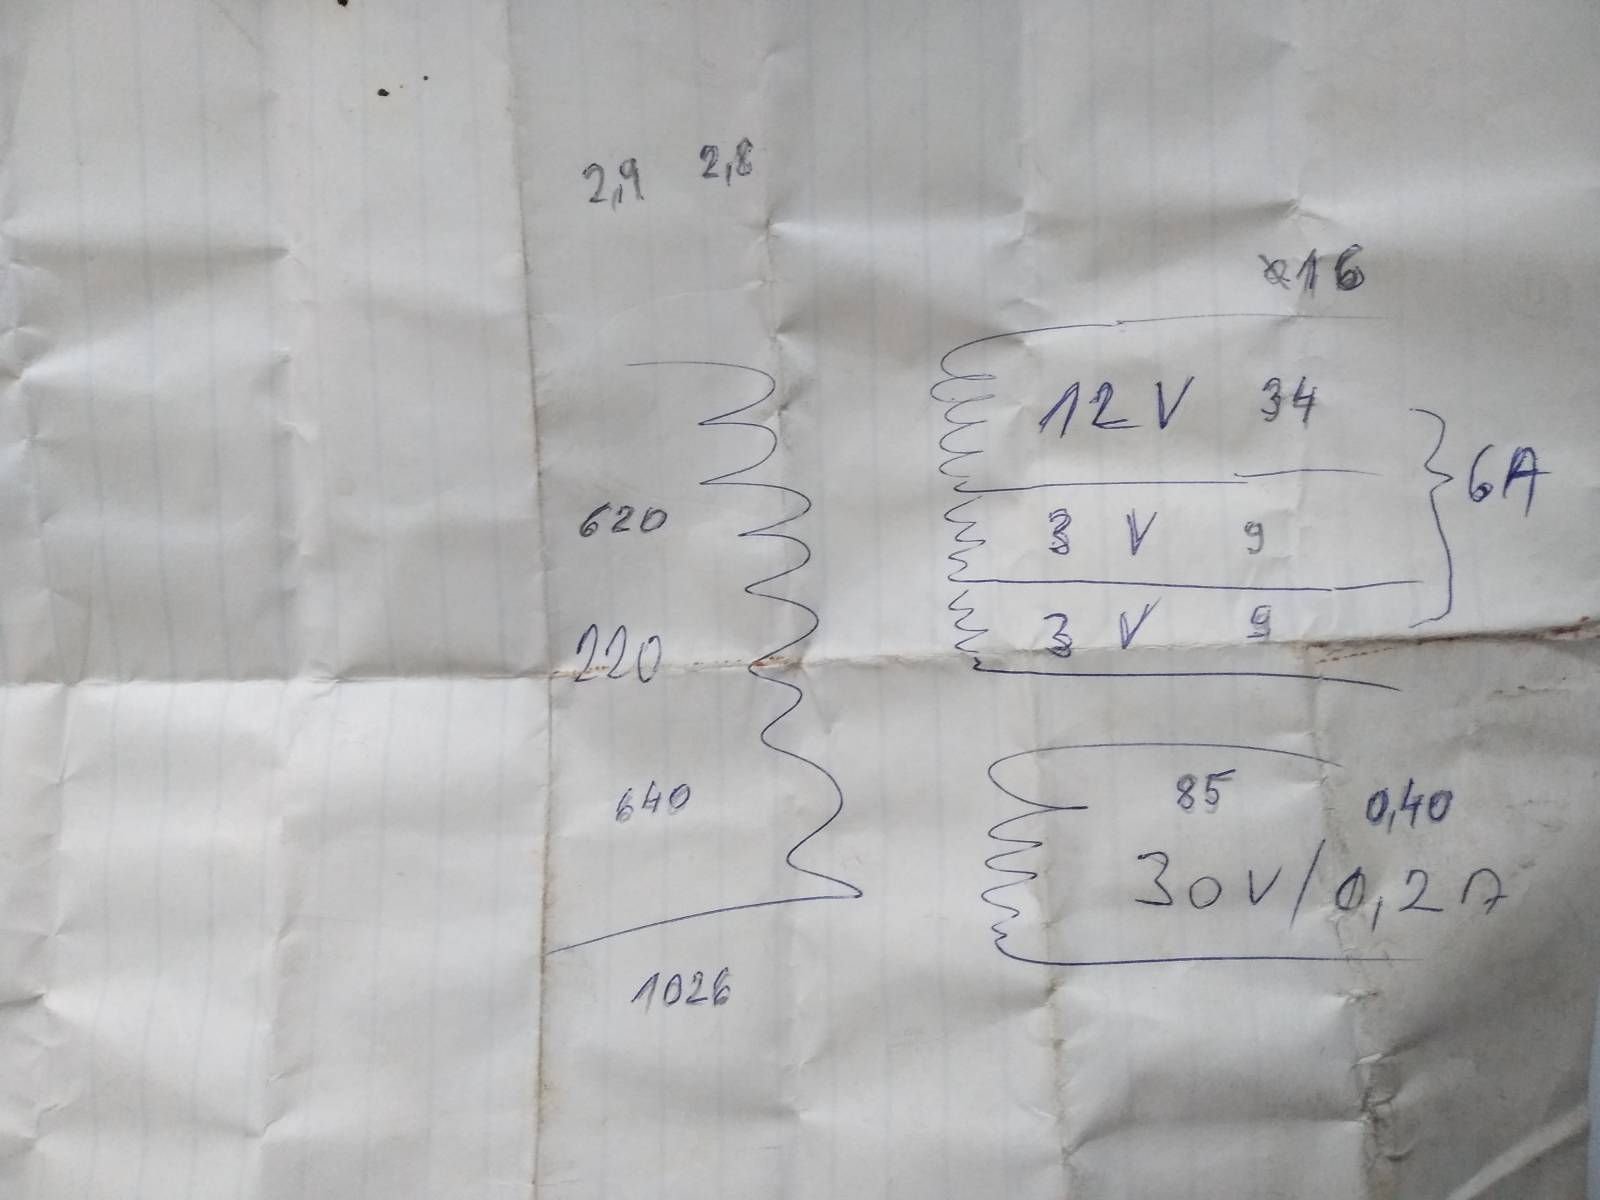 2,9 2,8
16
12 V 34
6A
620
3 V 9
220
3 V 9
640
85 0,40
30V/0,2A
1026